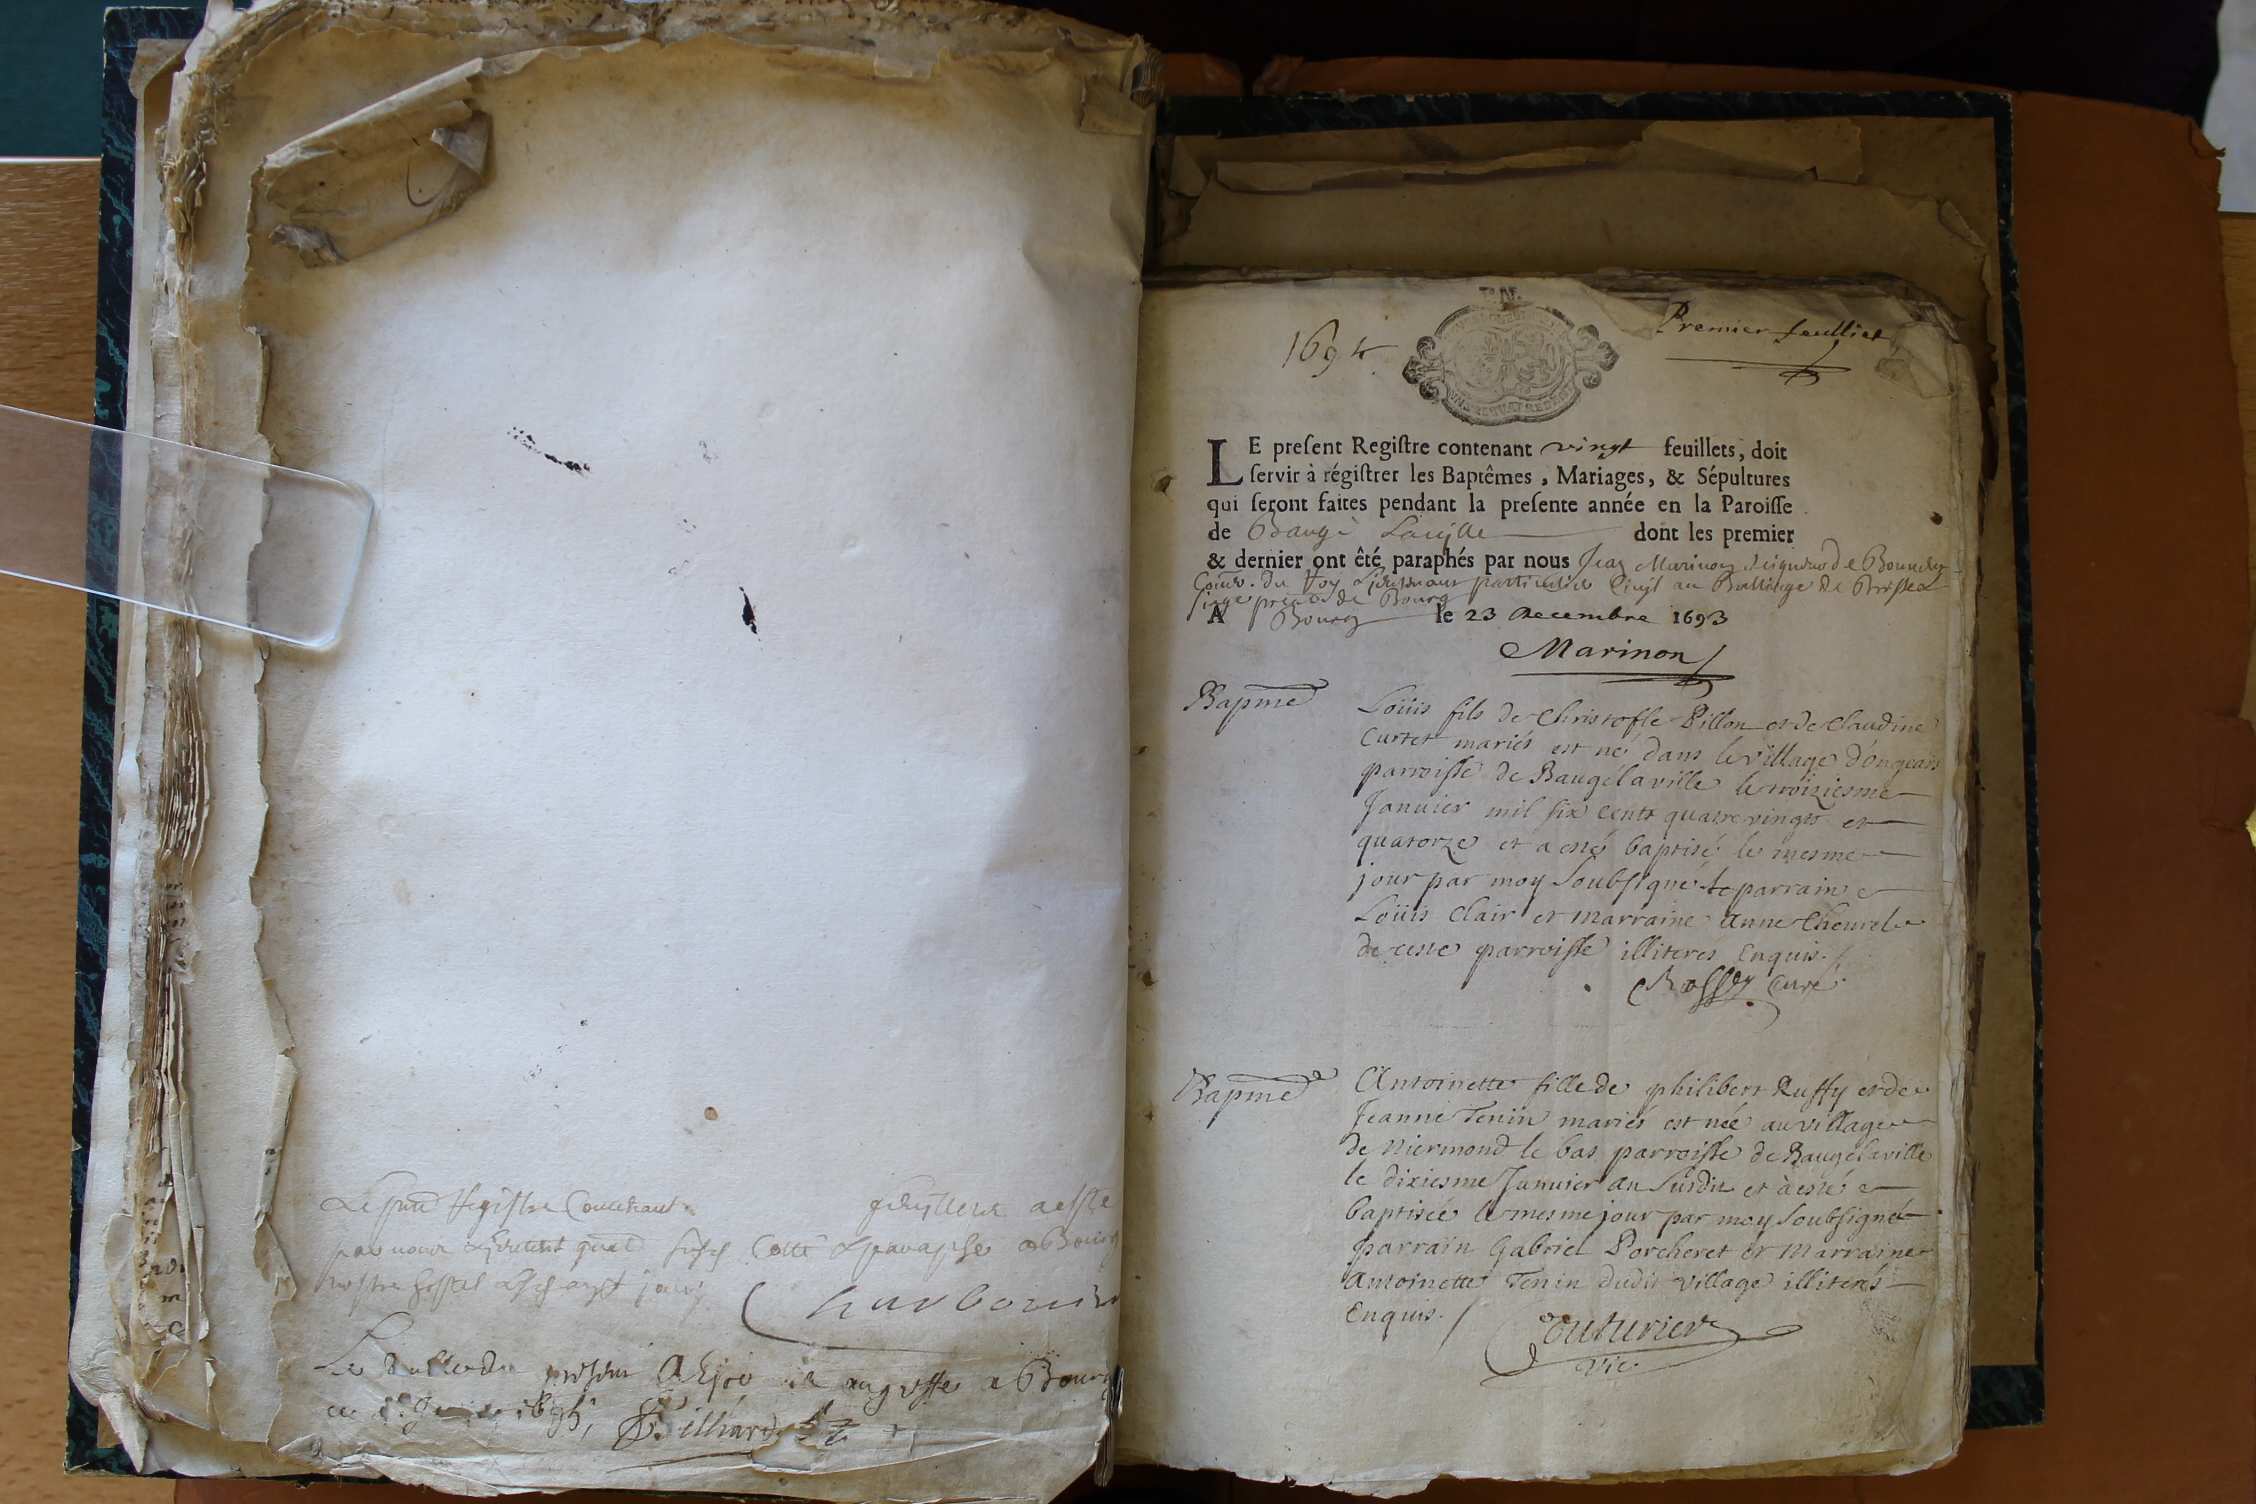 Le pnt Registre Contenant feuilletz a esté
par nous Cotté & paraphé a Bourg
nostre hostel
Charbonnier
Le double du present a esté a Bourg
ce Billiard
1694
Premier feulliet
LE preſent Regiſtre contenant vingt feuillets, doit
ſervir à régiſtrer les Baptêmes, Mariages, & Sépultures
qui ſeront faites pendant la preſente année en la Paroiſſe
de Baugé Laville dont les premier
& dernier ont êté paraphés par nous Jean Marinon Seigneur de
Coner. du Roy Lieutenant particulier Civil au Balliage de Bresse
siege de Bourg
A Bourg le 23 Decembre 1693
Marinon
Bapme
Loüis fils de Christofle Pillon et de Claudine
Curtet mariés est né dans le village d'ongeais
parroisse de Baugélaville le troiziesme
Januier mil six cents quatre vingts et
quatorze et a esté baptisé le mesme
jour par moy Soubsigné le parrain
Loüis Clair et marraine Anne Cheurel
de ceste parroisse illiterés Enquis.
Rossey Curé
Bapme
Antoinette fille de philibert Ruffy et de
Jeanne Tenin mariés est née au village
de Niermond le bas parroisse de Baugélaville
le dixiesme Januier an Susdit et à esté
baptisée le mesme jour par moy Soubsigné
parrain Gabriel Porcheret et Marraine
Antoinette Tenin dudit village illiterés
Enquis.
Couturier
Vic.